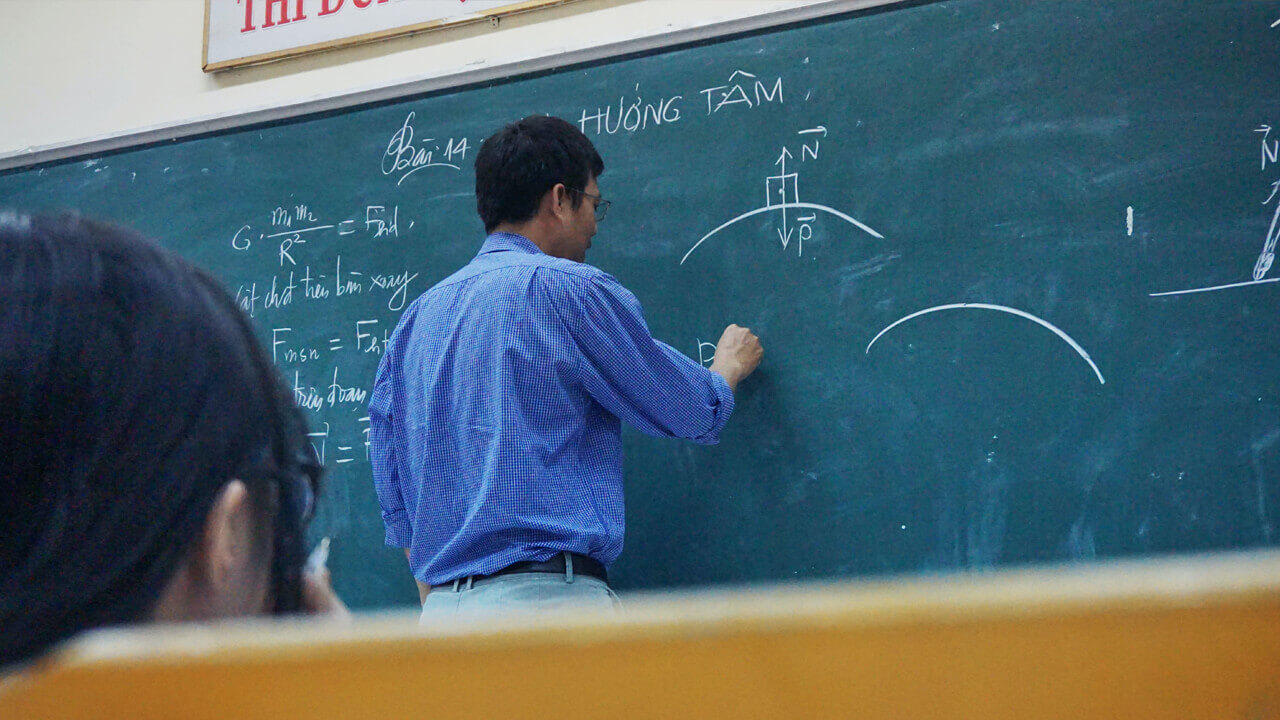 THI
Bài 14 HƯỚNG TÂM
G. m₁m₂/R² = Fhd.
vật chất trên bàn xoay
Fmsn = Fht
trên đoạn
N =
N
P
P
N